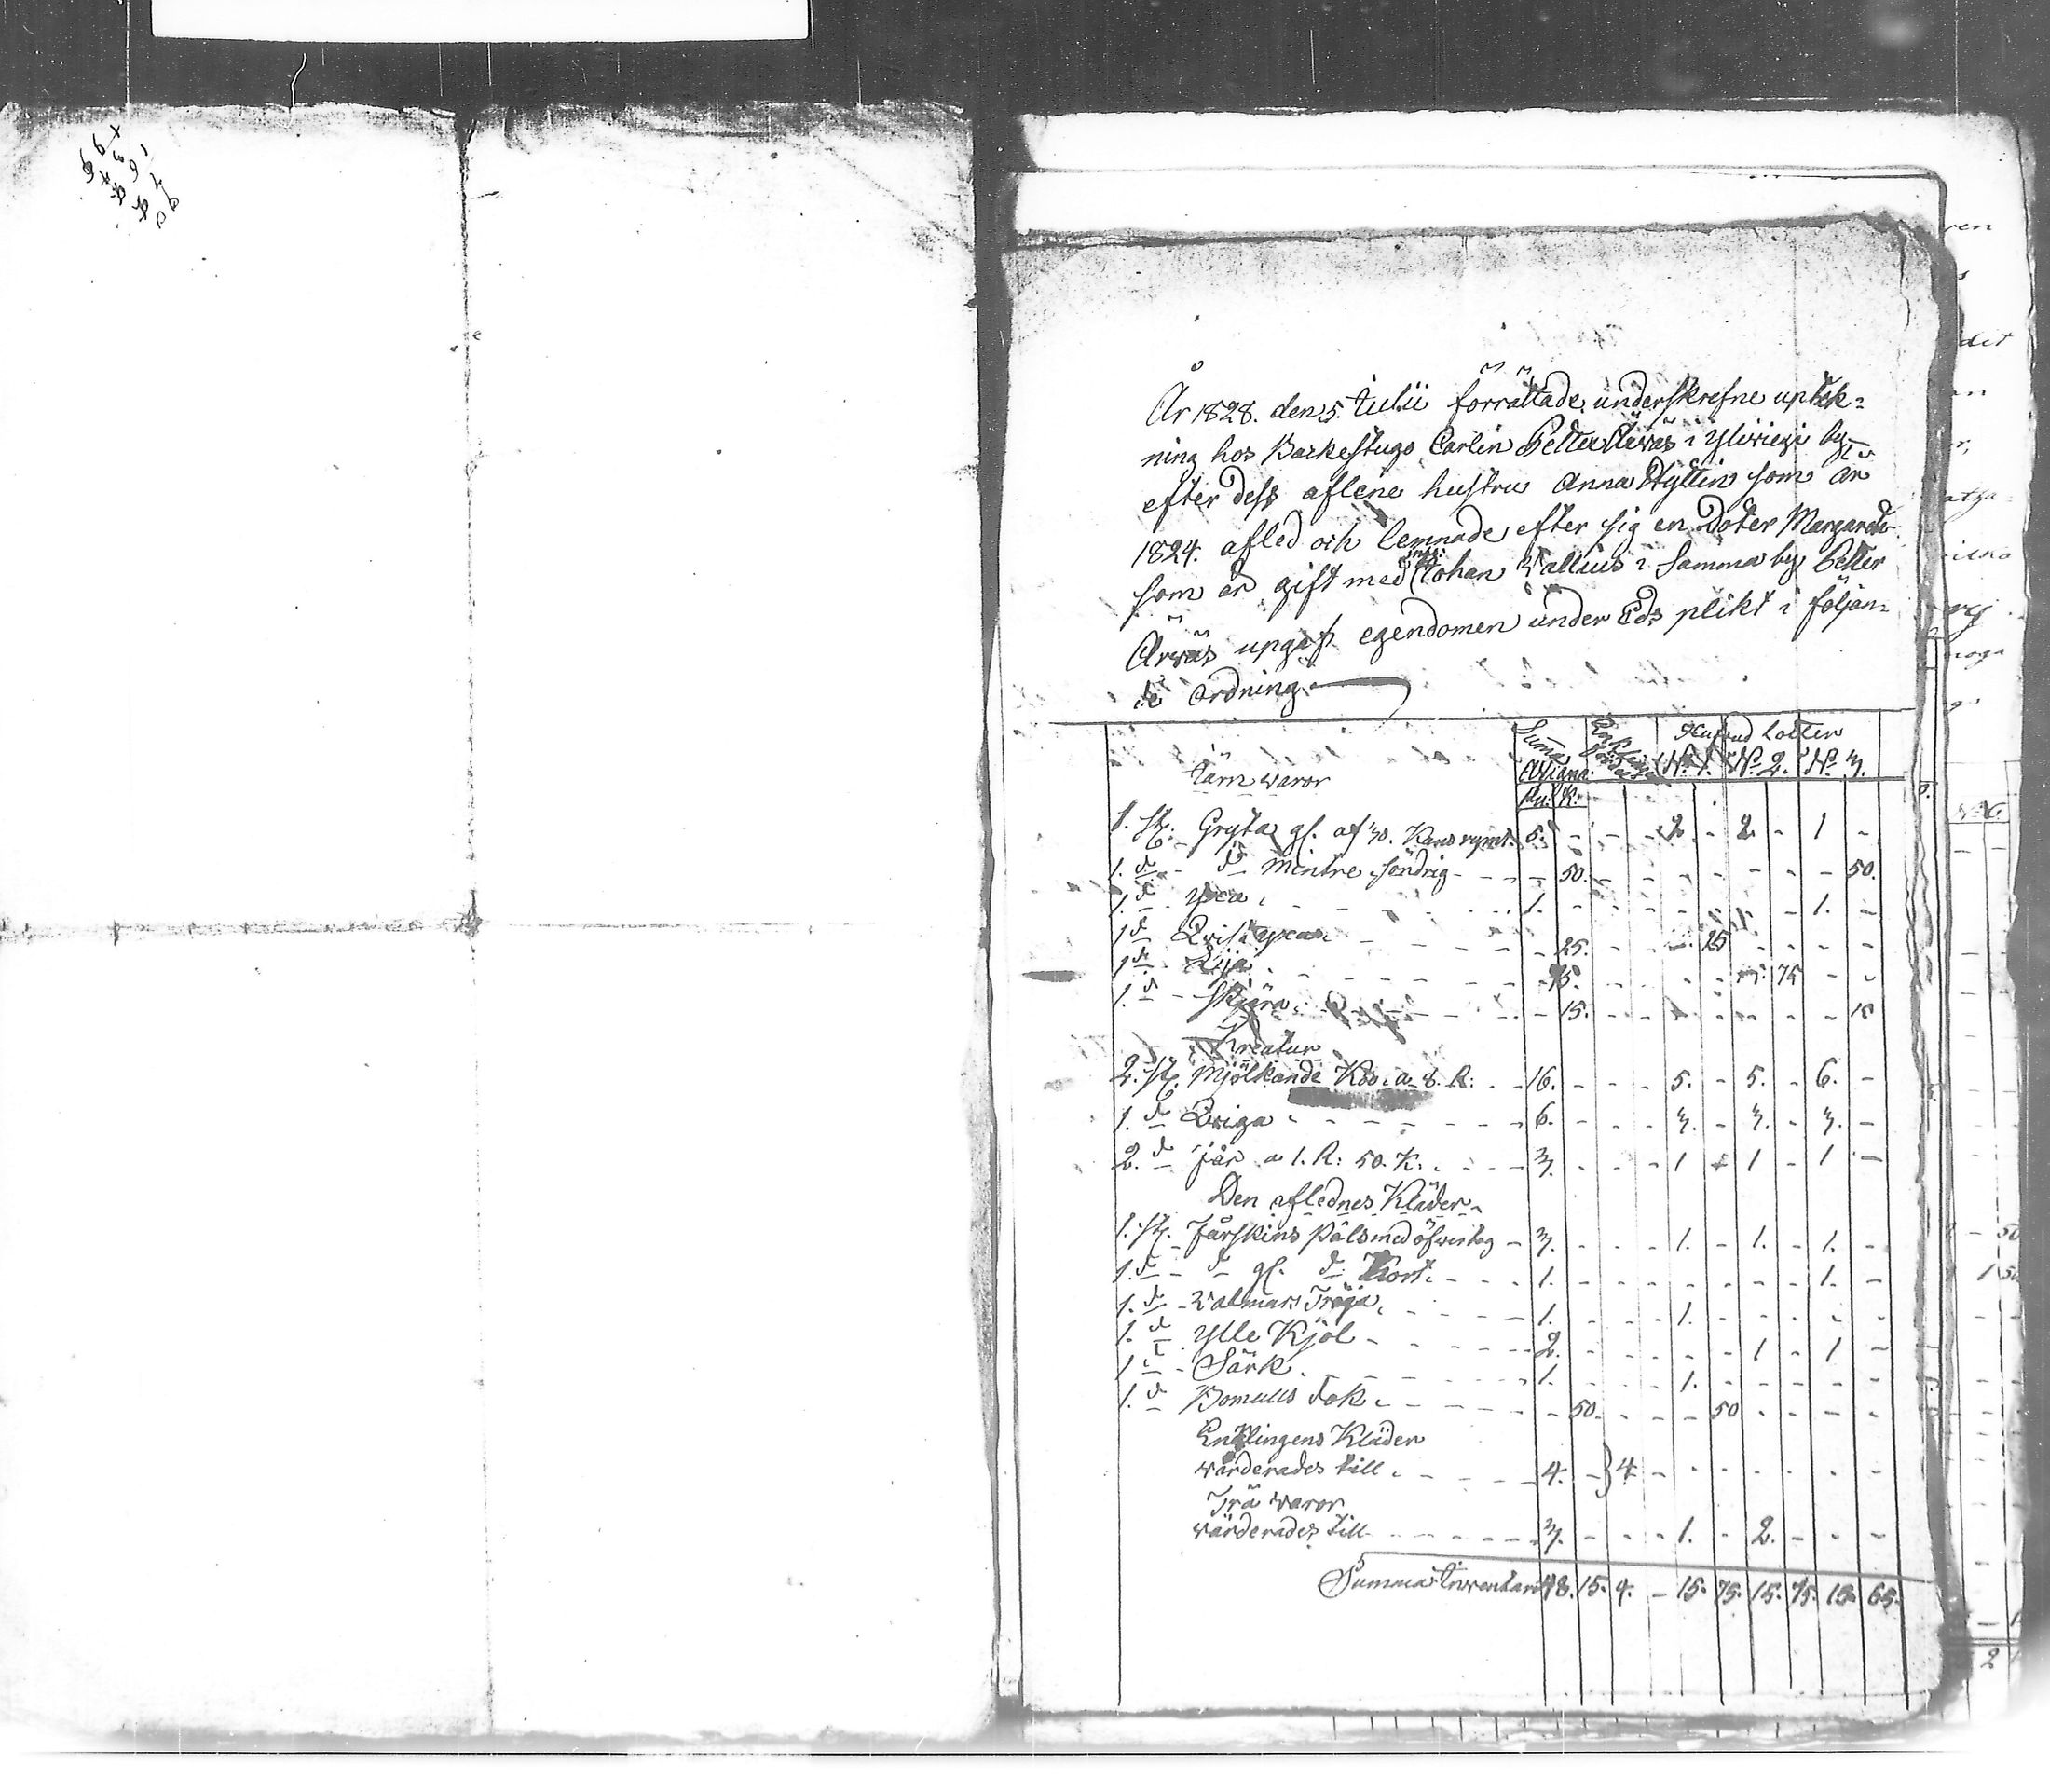 År 1828. den 5. Iulii förrättade underskrefne uptek-
ning hos Backestugo Carlin Petter Ärwäs i Yliwiexi by
efter dess aflene hustru Anna Hyttin som år
1824. afled och lemnade efter sig en Doter Margareta
som är gift med Johan Wallius i Samma by Petter
Ärwäs upgaf egendomen under Eds plikt i följan-
de ordning
Iärn waror
Summa
R: K:
Lotter
N: 1. N: 2. N: 3.
1. st. Gryta gl. af 30. Kans rymt. 5. - - - 2. - 2. - 1 -
1. d - d mindre söndrig - - - - 50. - - - - - - - 50.
1. d yxa. - - - 1. - - - - - - - 1. -
1 d Qvist yxa - - - 25. - - - 25 - - - -
1 d Lija - - - 75. - - - - - 75 - -
1. d - skjära. - - - 15. - - - - - - - 15
Kreatur
2. st. Mjölkande Kor. a. 8. R: - - 16. - - - 5. - 5. - 6. -
1. d Qwiga - - - 6. - - - 3. - 3. - 3. -
2. d får a 1. R: 50. K: - - - 3. - - - 1 - 1 - 1 -
Den aflednes Kläder
1. st. Fårskins Päls med öfwertog - 3. - - - 1. - 1. - 1. -
1. d - d gl. d Kort. - - - 1. - - - - - - - 1. -
1. d - Walmars Tröja. - - - 1. - - - 1. - - - - -
1. d ylle Kjol - - - 2. - - - - - 1 - 1 -
1 d - Särk. - - - 1. - - - 1. - - - - -
1. d Bomulls dok. - - - 50. - - - 50 - - - -
Enklingens Kläder
wärderades till. - - - 4. - } 4 - - - - - - -
Trä waror
wärderades till - - - 3. - - - 1. - 2. - - -
Summa Inventarii 48. 15. 4. - 15. 75. 15. 75. 13. 65.